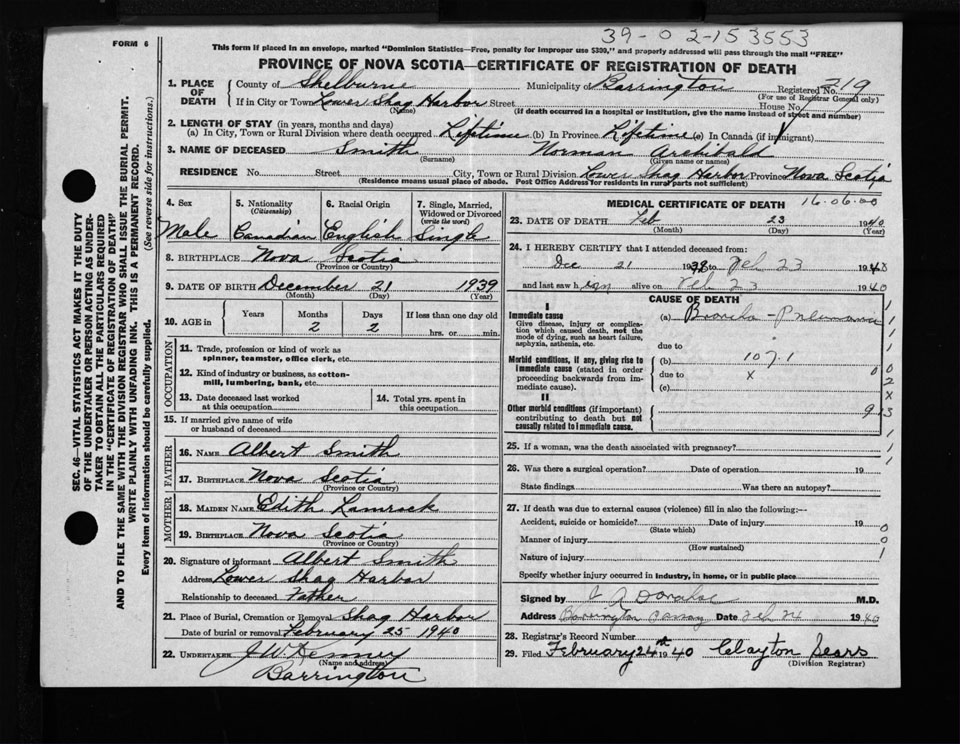 39-02-153553
FORM 6
This form if placed in an envelope, marked "Dominion Statistics—Free, penalty for improper use $300," and properly addressed will pass through the mail "FREE"
PROVINCE OF NOVA SCOTIA—CERTIFICATE OF REGISTRATION OF DEATH
1. PLACE OF DEATH County of Shelburne Municipality of Barrington Registered No. 219
(For use of Registrar General only)
If in City or Town Lower Shag Harbor Street House No.
(Name) (If death occurred in a hospital or institution, give the name instead of street and number)
2. LENGTH OF STAY (in years, months and days)
(a) In City, Town or Rural Division where death occurred Lifetime (b) In Province Lifetime (c) In Canada (if immigrant)
3. NAME OF DECEASED Smith Norman Archibald
(Surname) (Given name or names)
RESIDENCE No. Street City, Town or Rural Division Lower Shag Harbor Province Nova Scotia
(Residence means usual place of abode. Post Office Address for residents in rural parts not sufficient)
4. Sex 5. Nationality (Citizenship) 6. Racial Origin 7. Single, Married, Widowed or Divorced (write the word)
Male Canadian English Single
8. BIRTHPLACE Nova Scotia
(Province or Country)
9. DATE OF BIRTH December 21 1939
(Month) (Day) (Year)
10. AGE in Years Months Days If less than one day old
2 2 hrs. or min.
OCCUPATION
11. Trade, profession or kind of work as spinner, teamster, office clerk, etc.
12. Kind of industry or business, as cotton-mill, lumbering, bank, etc.
13. Date deceased last worked at this occupation
14. Total yrs. spent in this occupation
15. If married give name of wife or husband of deceased
FATHER
16. NAME Albert Smith
17. BIRTHPLACE Nova Scotia
(Province or Country)
MOTHER
18. MAIDEN NAME Edith
19. BIRTHPLACE Nova Scotia
(Province or Country)
20. Signature of informant Albert Smith
Address Lower Shag Harbor
Relationship to deceased Father
21. Place of Burial, Cremation or Removal Shag Harbor
Date of burial or removal February 25 1940
22. UNDERTAKER J. W. Kenney
(Name and address)
Barrington
MEDICAL CERTIFICATE OF DEATH 16.06.00
23. DATE OF DEATH Feb 23 1940
(Month) (Day) (Year)
24. I HEREBY CERTIFY that I attended deceased from:
Dec 21 19 to Feb 23 19
and last saw h im alive on Feb 23 1940
CAUSE OF DEATH
I
Immediate cause
Give disease, injury or complication which caused death, not the mode of dying, such as heart failure, asphyxia, asthenia, etc.
(a) Broncho-Pneumonia
due to
Morbid conditions, if any, giving rise to immediate cause (stated in order proceeding backwards from immediate cause).
(b) 107.1
due to x
(c)
II
Other morbid conditions (if important) contributing to death but not causally related to immediate cause.
25. If a woman, was the death associated with pregnancy?
26. Was there a surgical operation? Date of operation 19
State findings Was there an autopsy?
27. If death was due to external causes (violence) fill in also the following:—
Accident, suicide or homicide? Date of injury 19
(State which)
Manner of injury
(How sustained)
Nature of injury
Specify whether injury occurred in industry, in home, or in public place
Signed by M.D.
Address Barrington Passage Date Feb 24 1940
28. Registrar's Record Number
29. Filed February 24th 1940 Clayton Sears
(Division Registrar)
SEC. 46—VITAL STATISTICS ACT MAKES IT THE DUTY
OF THE UNDERTAKER OR PERSON ACTING AS UNDER-
TAKER TO OBTAIN ALL THE PARTICULARS REQUIRED
IN THE "CERTIFICATE OF REGISTRATION OF DEATH"
AND TO FILE THE SAME WITH THE DIVISION REGISTRAR WHO SHALL ISSUE THE BURIAL PERMIT.
WRITE PLAINLY WITH UNFADING INK. THIS IS A PERMANENT RECORD.
Every item of information should be carefully supplied. (See reverse side for instructions.)